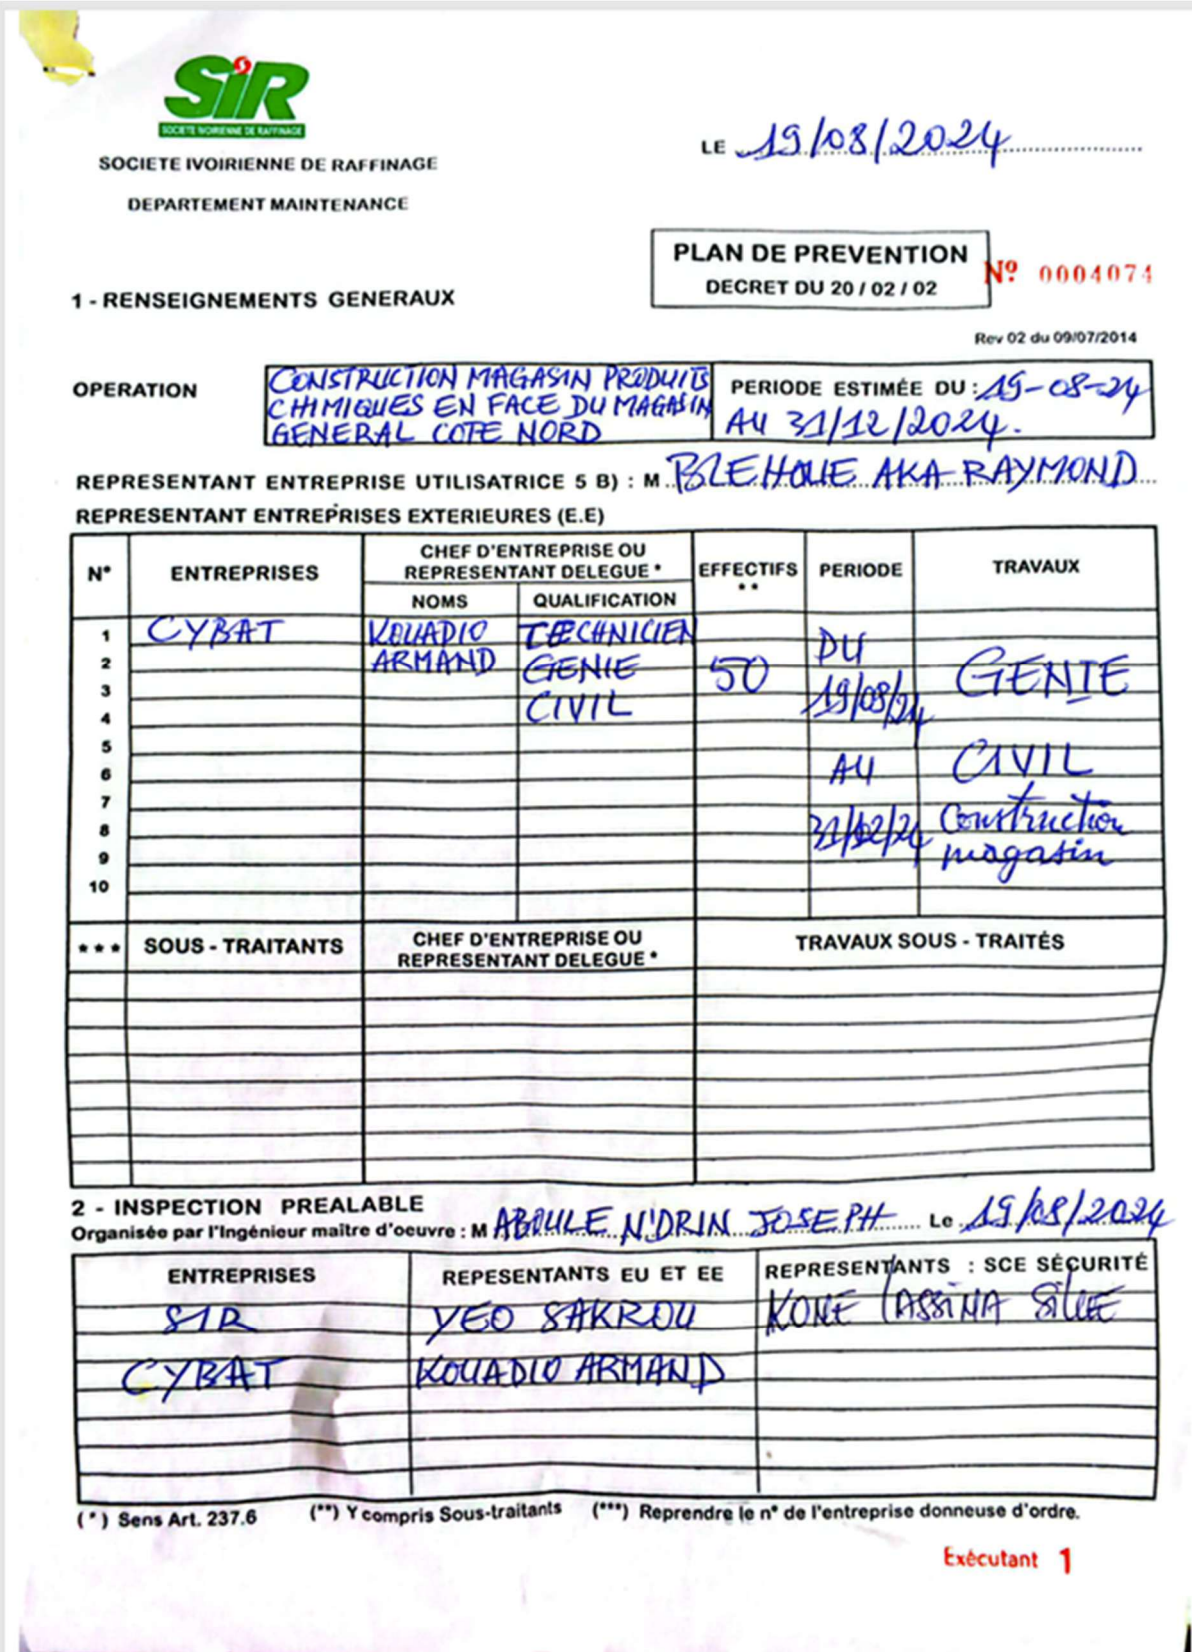 SiR
SOCIETE IVOIRIENNE DE RAFFINAGE
SOCIETE IVOIRIENNE DE RAFFINAGE
DEPARTEMENT MAINTENANCE
LE 19/08/2024
PLAN DE PREVENTION
DECRET DU 20 / 02 / 02
Nº 0004074
1 - RENSEIGNEMENTS GENERAUX
Rev 02 du 09/07/2014
OPERATION
CONSTRUCTION MAGASIN PRODUITS
CHIMIQUES EN FACE DU MAGASIN
GENERAL COTE NORD
PERIODE ESTIMÉE DU : 19-08-24
AU 31/12/2024.
REPRESENTANT ENTREPRISE UTILISATRICE 5 B) : M BLEHOUE AKA RAYMOND
REPRESENTANT ENTREPRISES EXTERIEURES (E.E)
N° ENTREPRISES CHEF D'ENTREPRISE OU REPRESENTANT DELEGUE * EFFECTIFS ** PERIODE TRAVAUX
NOMS QUALIFICATION
1 CYBAT KOUADIO TECHNICIEN DU
2 ARMAND GENIE 50 GENIE
3 19/08/24
4 CIVIL
5
6 AU CIVIL
7
8 31/12/24 Construction
9 magasin
10
*** SOUS - TRAITANTS CHEF D'ENTREPRISE OU REPRESENTANT DELEGUE * TRAVAUX SOUS - TRAITÉS
2 - INSPECTION PREALABLE
Organisée par l'Ingénieur maître d'oeuvre : M ABOULE N'DRIN JOSEPH Le 19/08/2024
ENTREPRISES REPESENTANTS EU ET EE REPRESENTANTS : SCE SÉCURITÉ
SIR YEO SAKROU KONE LASSINA
CYBAT KOUADIO ARMAND
(*) Sens Art. 237.6 (**) Y compris Sous-traitants (***) Reprendre le n° de l'entreprise donneuse d'ordre.
Exécutant 1